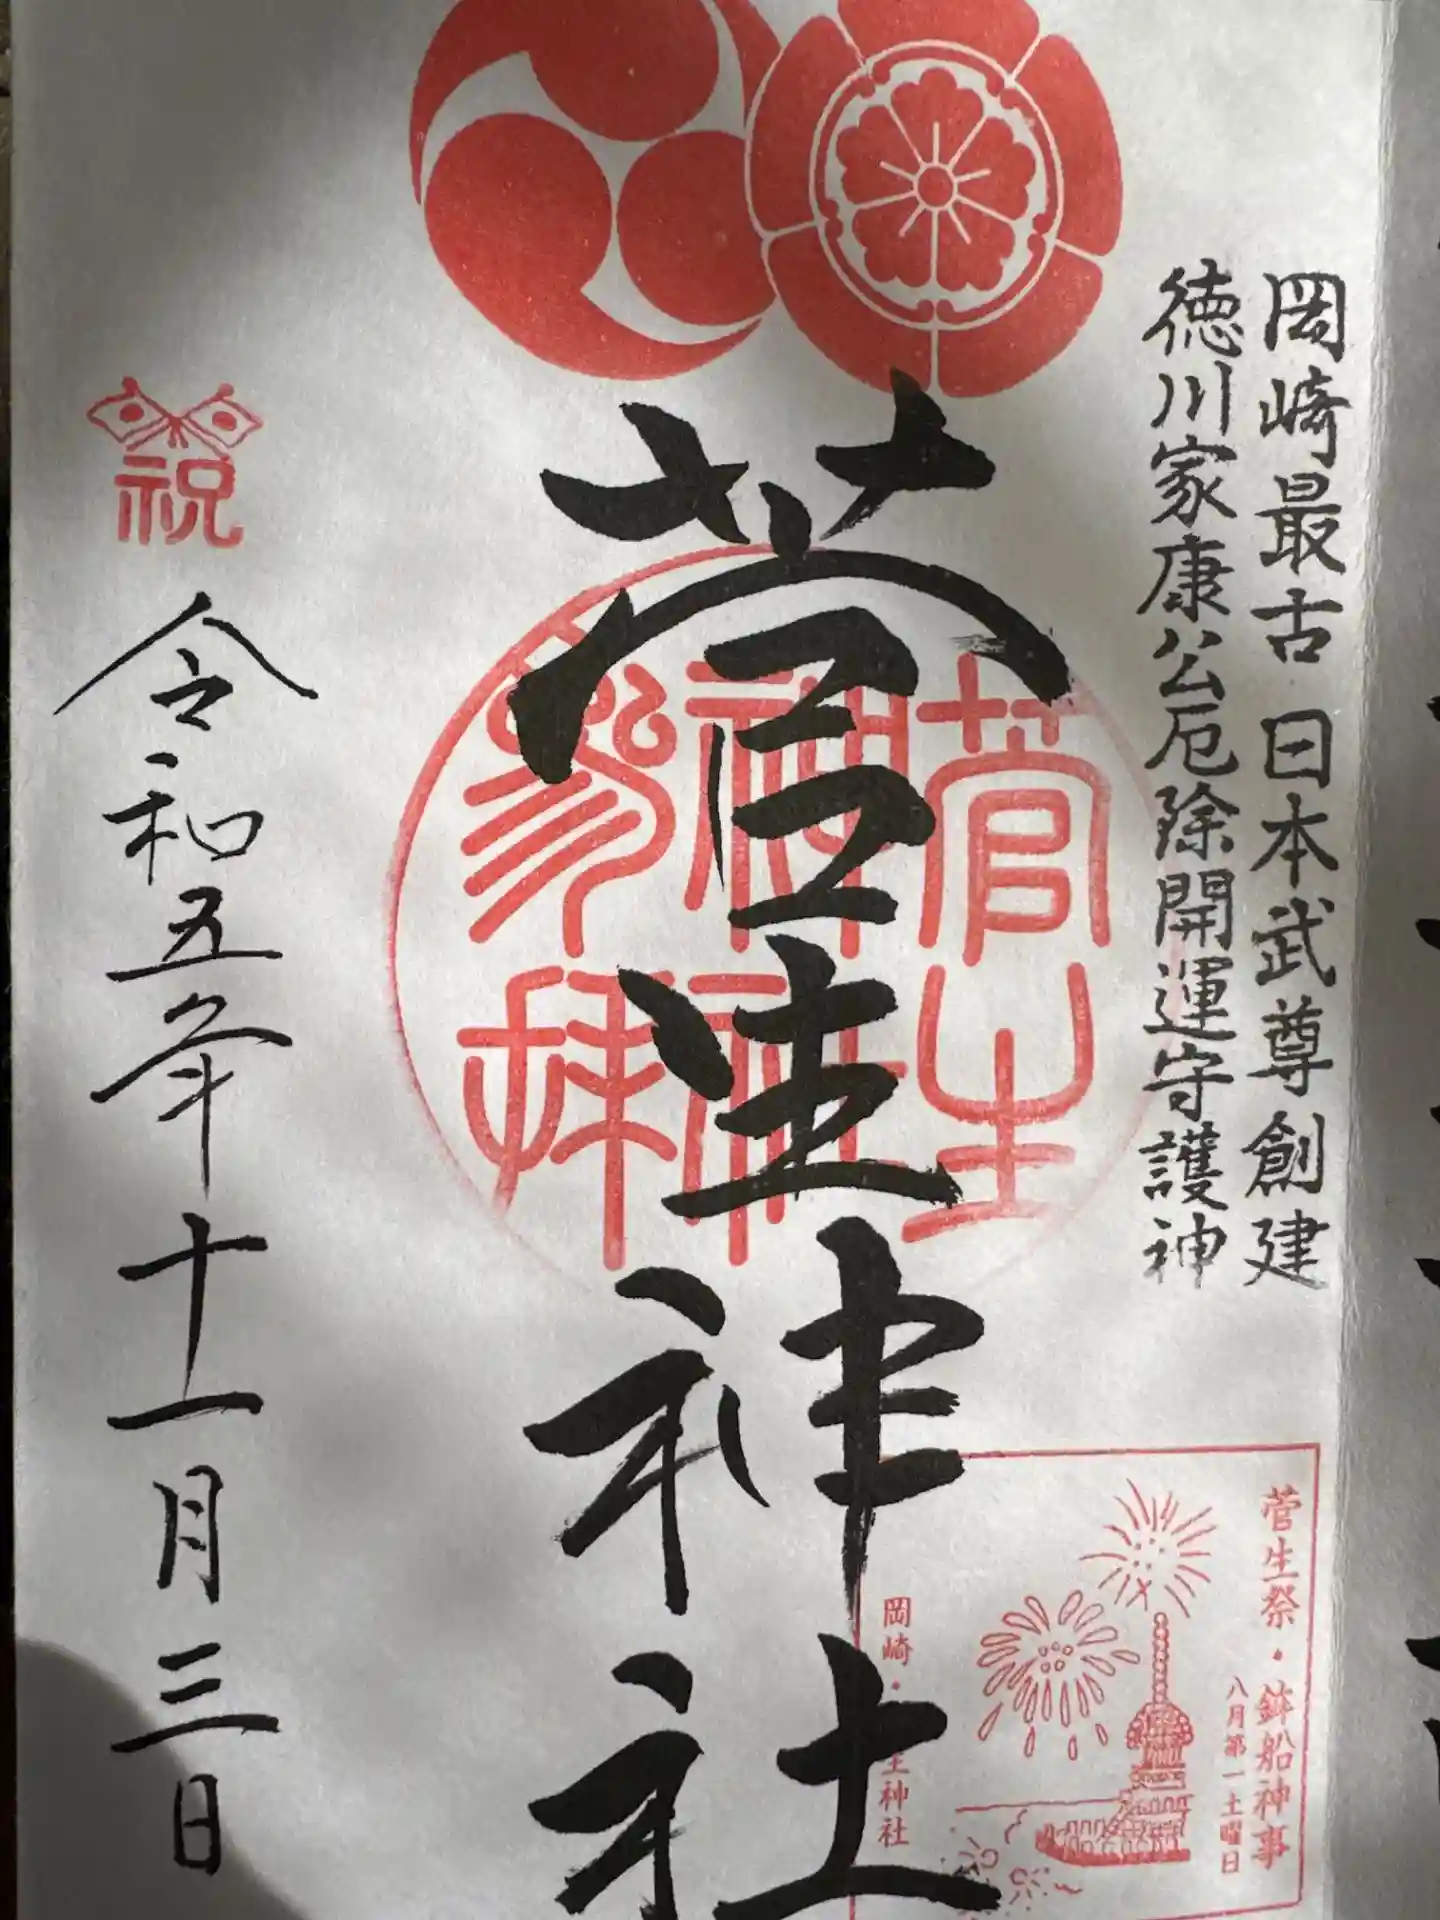 岡崎最古 日本武尊創建
徳川家康公厄除開運守護神
菅生神社
菅生
神社
参拝
祝
令和五年十一月三日
菅生祭・鉢船神事
八月第一土曜日
岡崎・
生神社